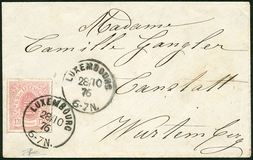 Madame
Camille Gangler
Canstatt
Wurtemberg
LUXEMBOURG
28/10
76
6-7N.
LUXEMBOURG
28/10
76
6-7N.